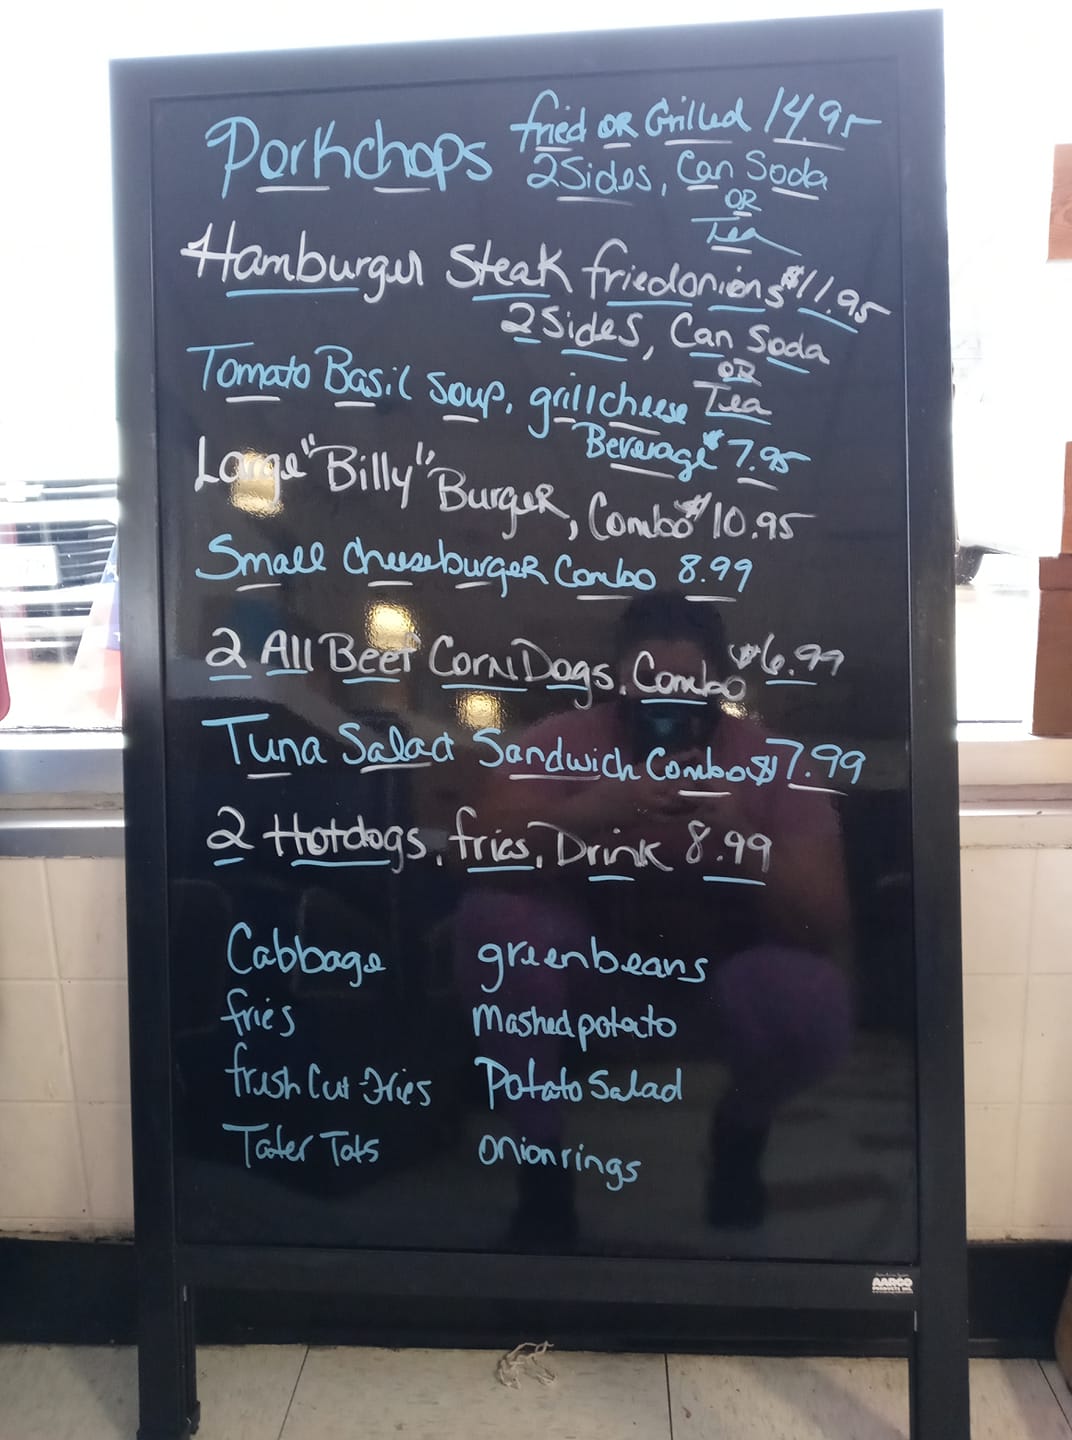 Porkchops fried OR Grilled 14.95
2 Sides, Can Soda
OR
Tea
Hamburger Steak fried onions $11.95
2 Sides, Can Soda
OR
Tea
Tomato Basil Soup, grill cheese
Beverage $7.95
Large "Billy" Burger, Combo $10.95
Small Cheeseburger Combo 8.99
2 All Beef Corn Dogs, Combo $6.99
Tuna Salad Sandwich Combo $7.99
2 Hotdogs, fries, Drink 8.99
Cabbage greenbeans
fries Mashed potato
fresh Cut Fries Potato Salad
Tater Tots onion rings
AARCO
PRODUCTS INC.